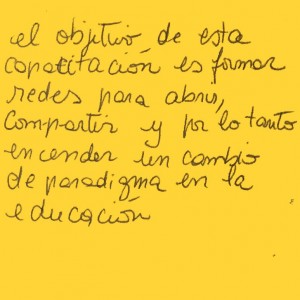 el objetivo de esta
capacitación es formar
redes para abrir,
compartir y por lo tanto
encender un cambio
de paradigma en la
educación